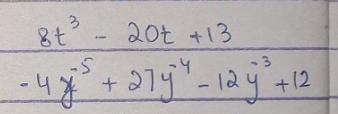 8t³ - 20t + 13
-4y⁻⁵ + 27y⁻⁴ - 12y⁻³ + 12